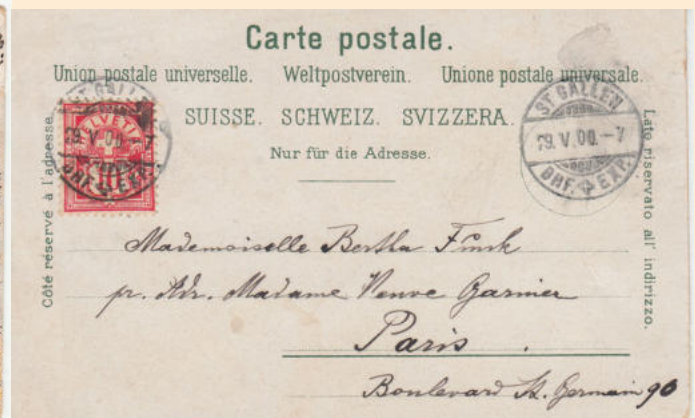 Carte postale.
Union postale universelle. Weltpostverein. Unione postale universale.
SUISSE. SCHWEIZ. SVIZZERA.
Nur für die Adresse.
Côté réservé à l'adresse.
Lato riservato all' indirizzo.
HELVETIA
10
ST. GALLEN
29. V. 00. – 7
BHF. EXP.
ST. GALLEN
29. V. 00. – 7
BHF. EXP.
Mademoiselle Bertha Funk
pr. Adr. Madame Veuve Garnier
Paris.
Boulevard St. Germain 90